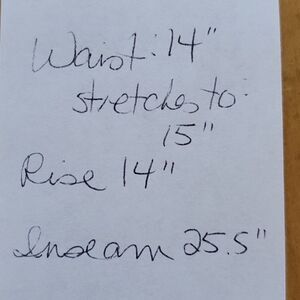 Waist: 14"
stretches to:
15"
Rise 14"
Inseam 25.5"